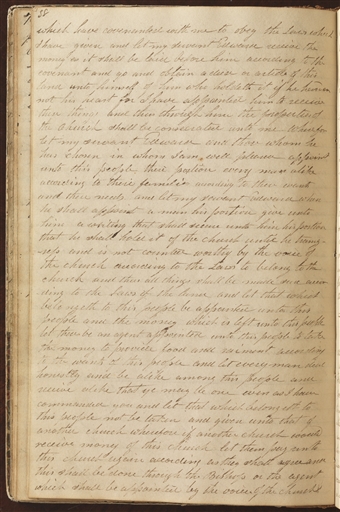 38
which have covenanted with me to obey the Laws which
I have given and let my servant Edward receive the
money as it shall be laid before them according to the
covenant and go and obtain a deed or article of this
land unto himself of him who holdeth it if he harden
not his heart for I have appointed him to receive
these things and thus through him the properties of
the Church shall be consecrated unto me Wherefore
let my servant Edward and those whom he
has chosen in whom I am well pleased appoint
unto this people their portion every man alike
according to their families according to their wants
and their needs and let my servant Edward when
he shall appoint a man his portion give unto
him a writing that shall secure unto him his portion
that he shall hold it of the church until he transg-
resses and is not counted worthy by the voice of
the church according to the Laws to belong to the
church and thus all things shall be made sure accor
ding to the Laws of the land and let that which
belongeth to this people be appointed unto this
people and the money which is left unto this people
let there be an agent appointed unto this people to take
the money to provide food and raiment according
to the wants of this people and let every man deal
honestly and be alike among this people and
receive alike that ye may be one even as I have
commanded you and let that which belongeth to
this people not be taken and given unto that of
another church wherefore if another church would
receive money of this church let them pay unto
this church again according as they shall agree and
this shall be done through the Bishop or the agent
which shall be appointed by the voice of the church